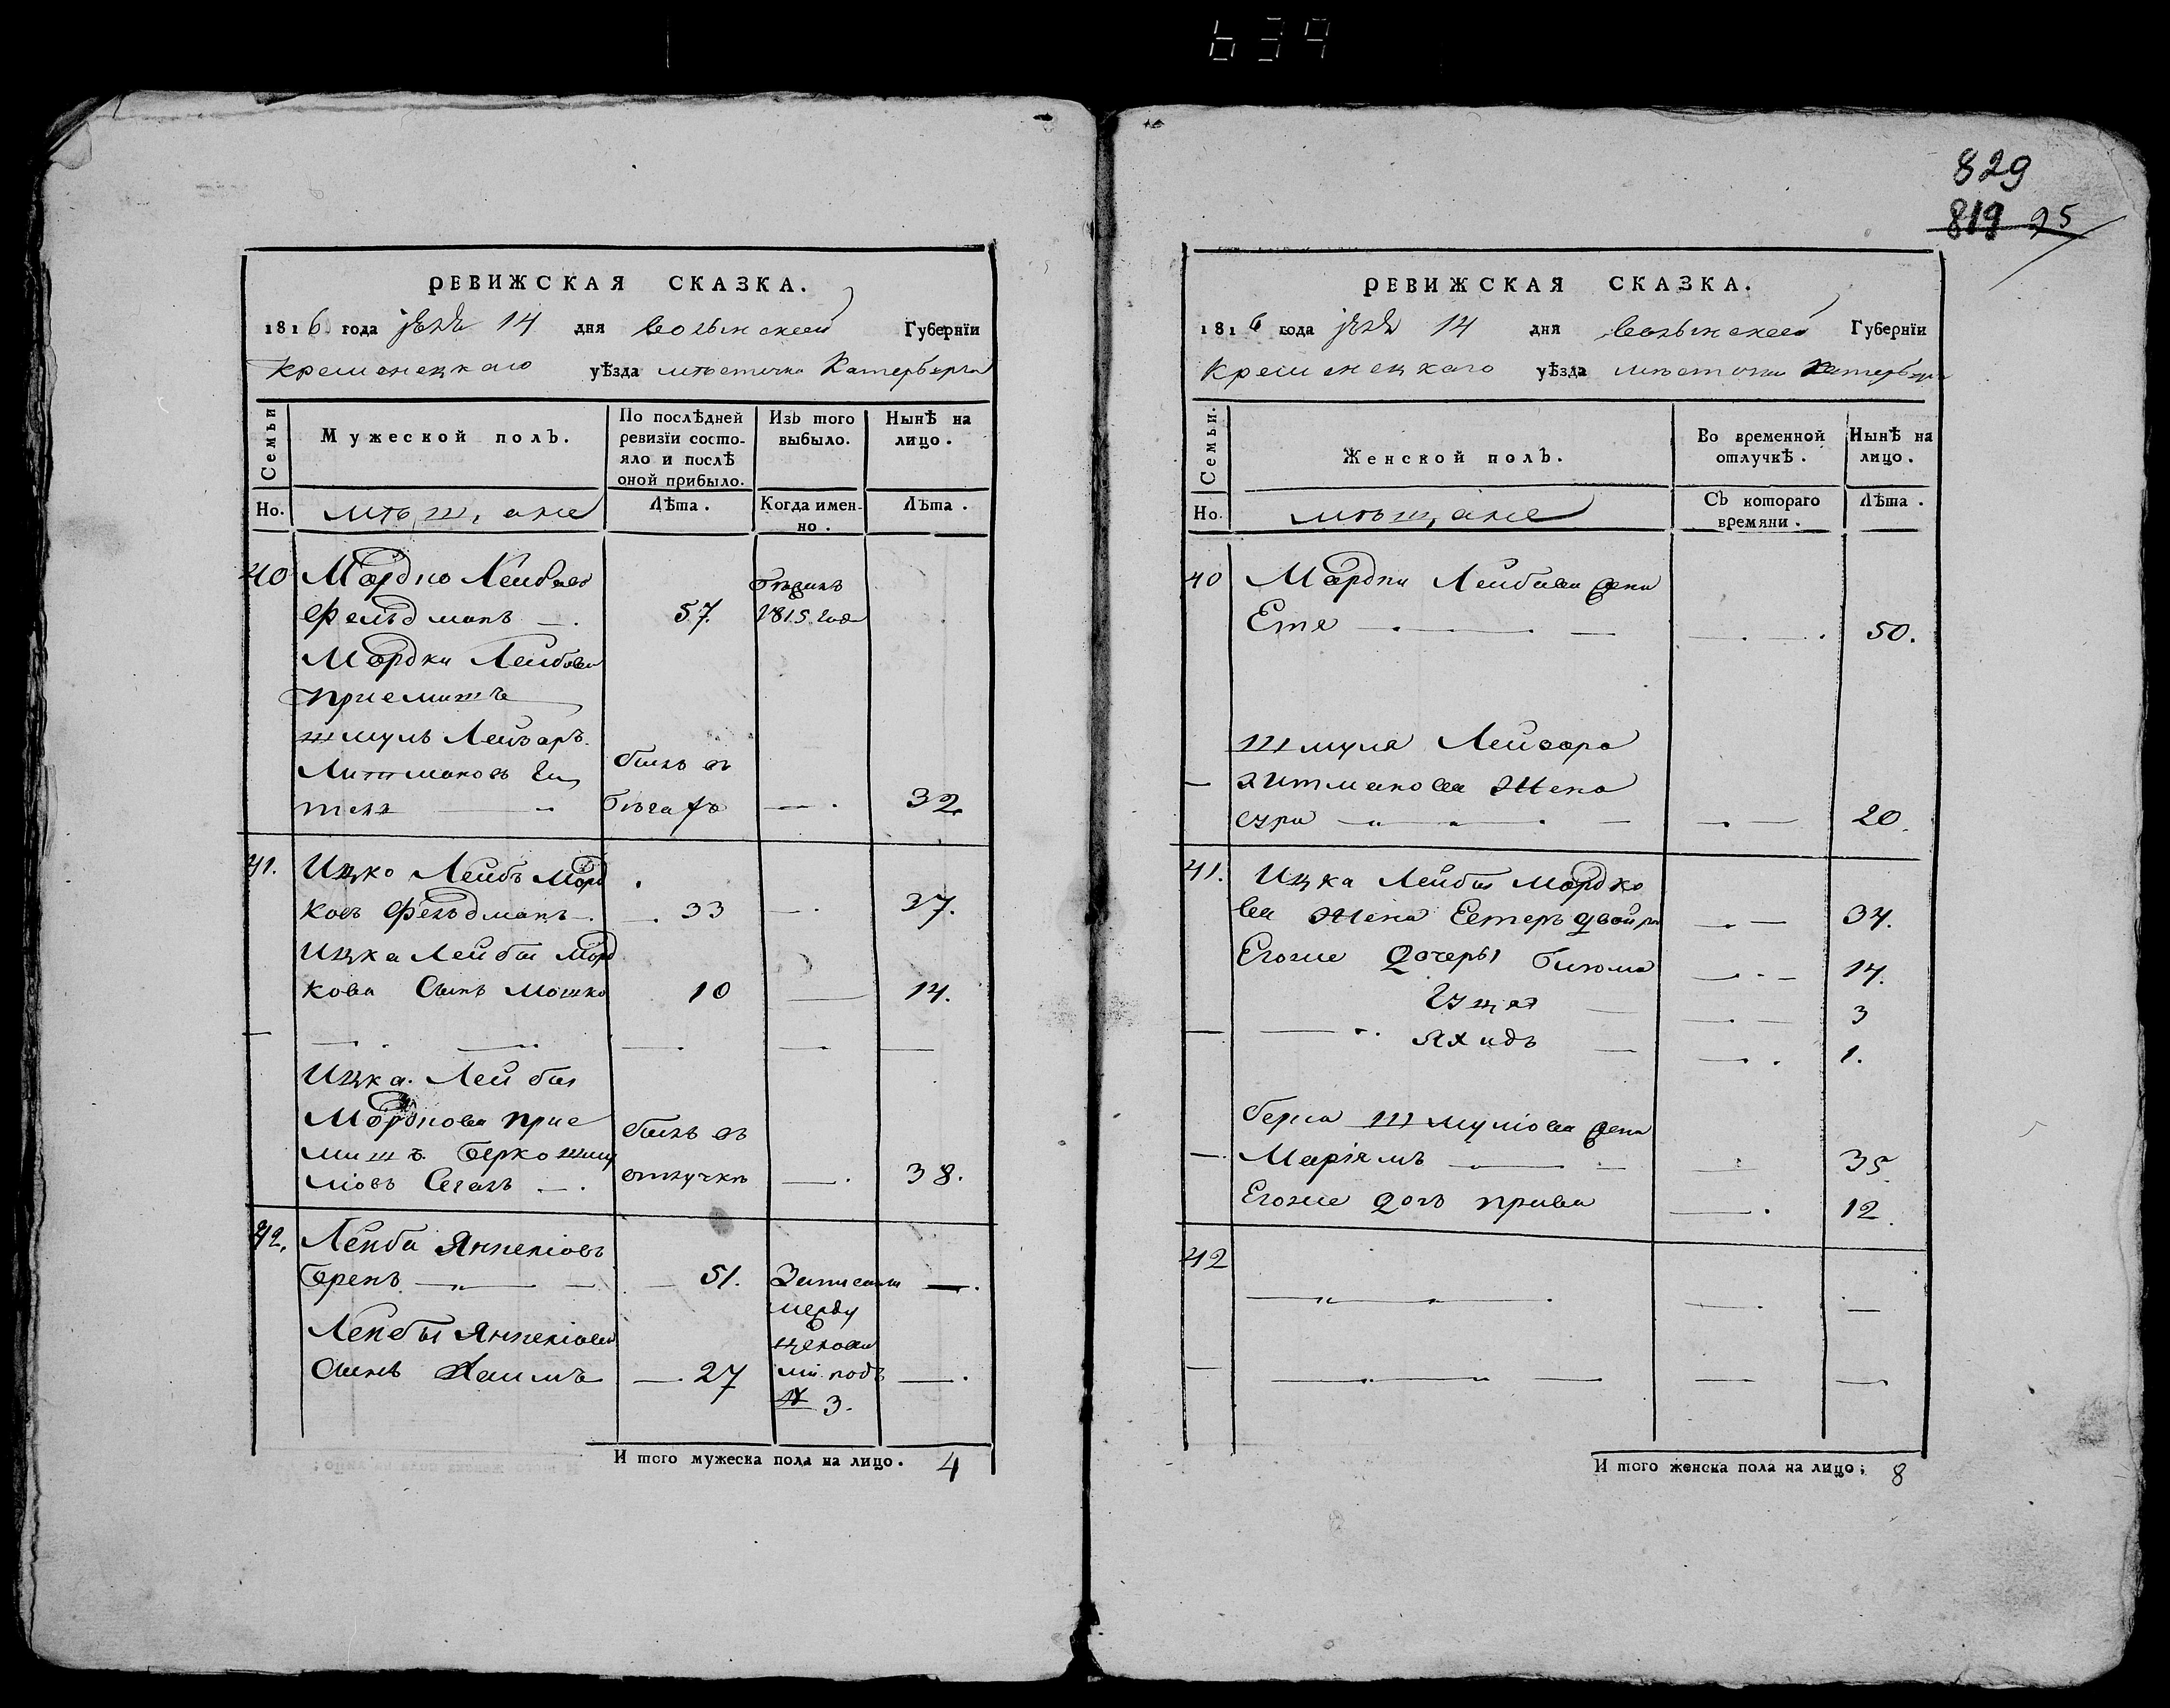 634
РЕВИЖСКАЯ СКАЗКА.
1816 года 14 дня Волынской Губернїи
Кременецкаго уѣзда мѣстечка Катербурга
Семьи
Мужеской полъ.
По послѣдней ревизїи состо-
яло и послѣ
оной прибыло.
Изъ того выбыло.
Нынѣ на лицо.
Но.
мѣщане
Лѣта.
Когда имен-
но.
Лѣта.
40 Мордко Лейбовъ
Фельдманъ 57. 1815 года
Мордки Лейбова
приемышъ
Шмуль Лейзаръ
Литмановъ
былъ въ
бѣгахъ 32
41. Ицко Лейбъ Морд
ковъ Фельдманъ 33 37.
Ицка Лейбы Морд
кова Сынъ Мошко 10 14.
Ицка Лейбы
Мордкова прие
мышъ Берко Шму
ліовъ Сегалъ
былъ въ
отлучке 38.
42. Лейба Янкеліовъ
Бренъ 51. Записаны
между
цеховы
ми подъ
№ 3.
Лейбы Янкеліова
Сынъ Хаимъ 27
И того мужеска пола на лицо. 4
829
819 25
РЕВИЖСКАЯ СКАЗКА.
1816 года 14 дня Волынской Губернїи
Кременецкаго уѣзда мѣстечка Катербурга
Семьи.
Женской полъ.
Во временной
отлучкѣ.
Нынѣ на
лицо.
Но.
мѣщане
Съ котораго
времяни.
Лѣта.
40 Мордки Лейбова жена
Етя 50.
Шмуля Лейзора
Литманова Жена
20.
41. Ицка Лейбы Мордко
ва Жена Естеръ Двойра 34.
Егоже Дочеры 14.
3
1.
Берка Шмуліова жена
Маріямъ 35
Егоже дочь 12.
42
И того женска пола на лицо; 8